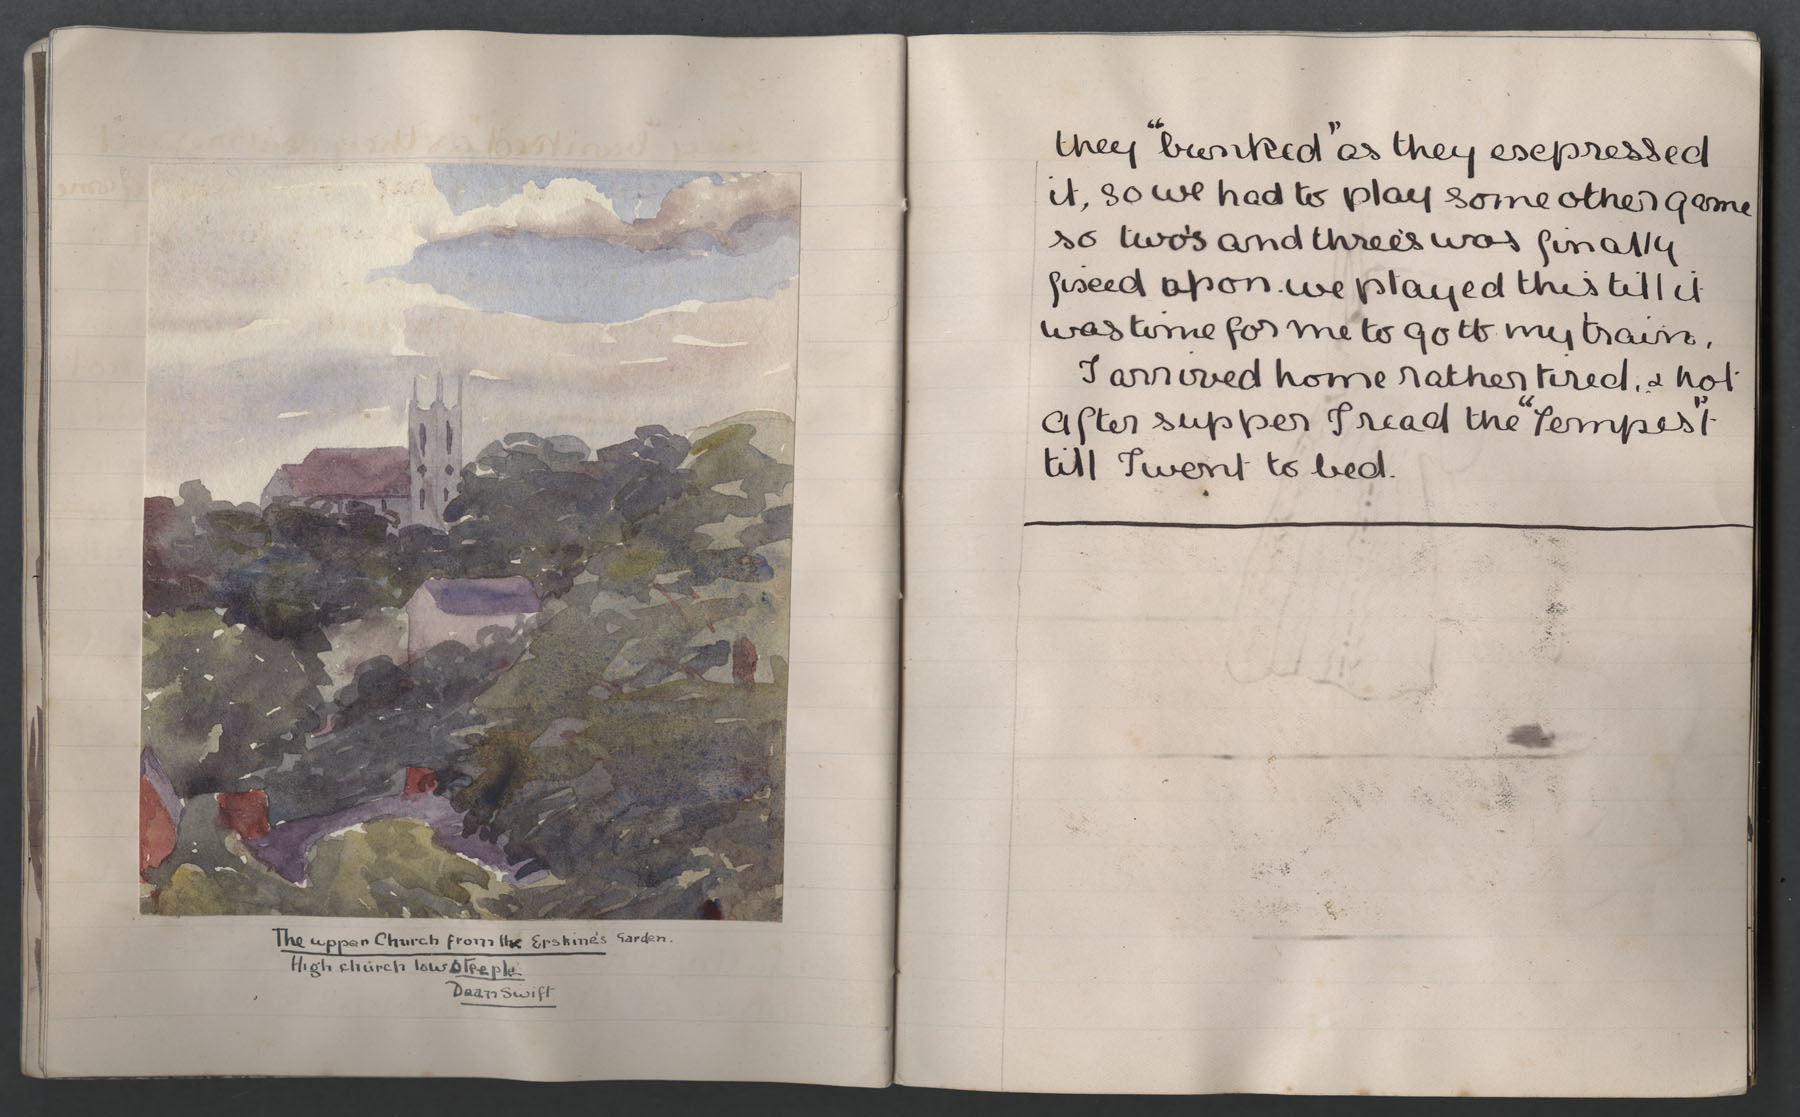 The upper Church from the Erskine's Garden.
High church low steeple
Dean Swift
they "bunked" as they expressed
it, so we had to play some other game
so two's and three's was finally
fixed upon. we played this till it
was time for me to go to my train.
I arrived home rather tired, & hot
After supper I read the "Tempest"
till I went to bed.